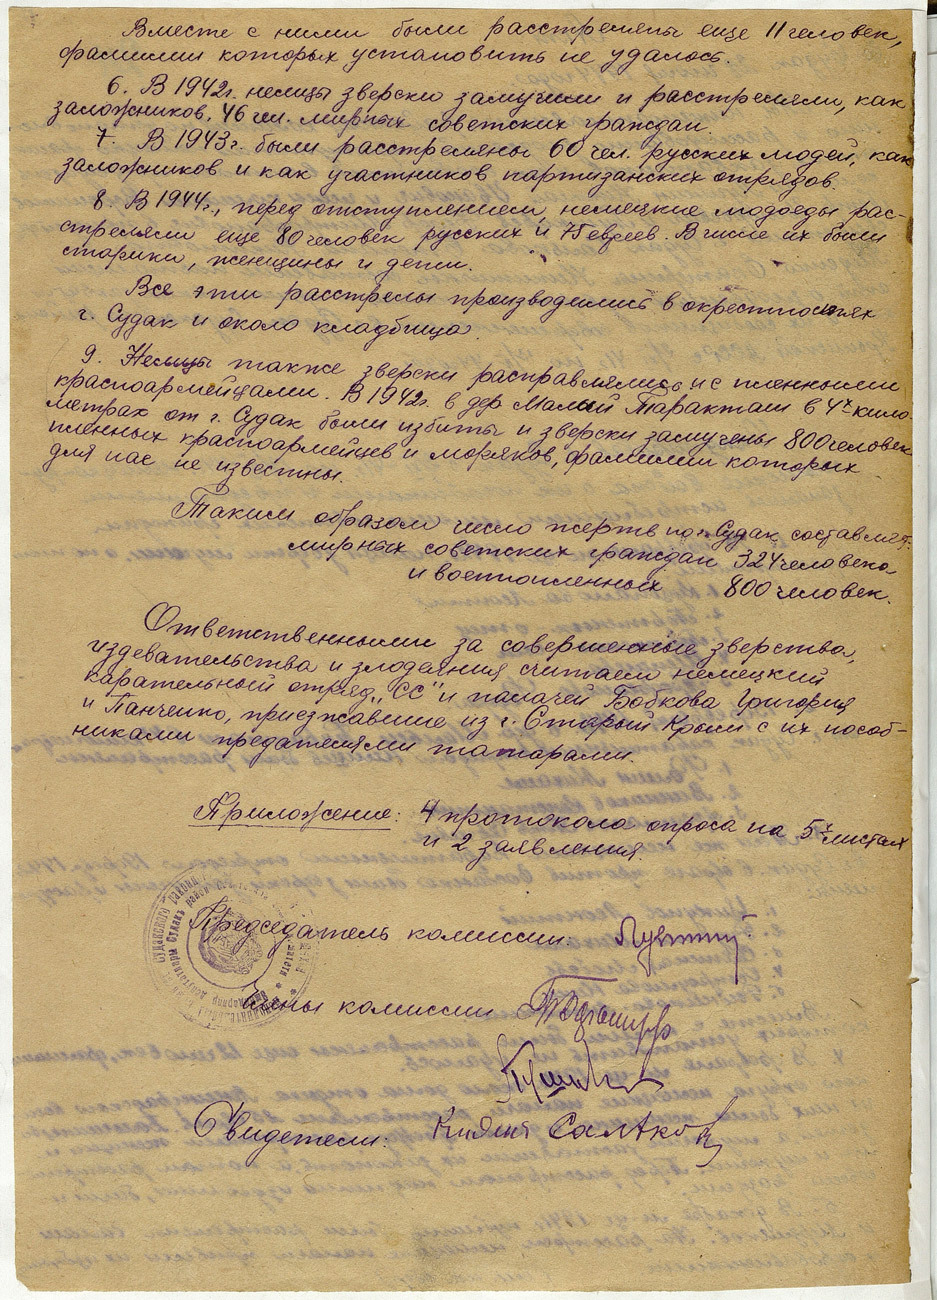 Вместе с ними были расстреляны еще 11 человек,
фамилии которых установить не удалось.
6. В 1942г. немцы зверски замучили и расстреляли, как
заложников, 46 чел. мирных советских граждан.
7. В 1943г. были расстреляны 60 чел. русских людей, как
заложников и как участников партизанских отрядов.
8. В 1944г., перед отступлением, немецкие людоеды рас-
стреляли еще 80 человек русских и 75 евреев. В числе их были
старики, женщины и дети.
Все эти расстрелы производились в окрестностях
г. Судак и около кладбища.
9. Немцы также зверски расправлялись и с пленными
красноармейцами. В 1942г. в дер. Малый Таракташ в 4х кило-
метрах от г. Судак были избиты и зверски замучены 800 человек
пленных красноармейцев и моряков, фамилии которых
для нас не известны.
Таким образом число жертв по г. Судак составляет:
мирных советских граждан 324 человека
и военнопленных 800 человек.
Ответственными за совершенные зверства,
издевательства и злодеяния считаем немецкий
карательный отряд "СС" и палачей Бобкова Григория
и Панченко, приезжавшие из г. Старый Крым с их пособ-
никами предателями татарами.
Приложение: 4 протокола опроса на 5ти листах
и 2 заявления.
Председатель комиссии:
Члены комиссии
Свидетели: